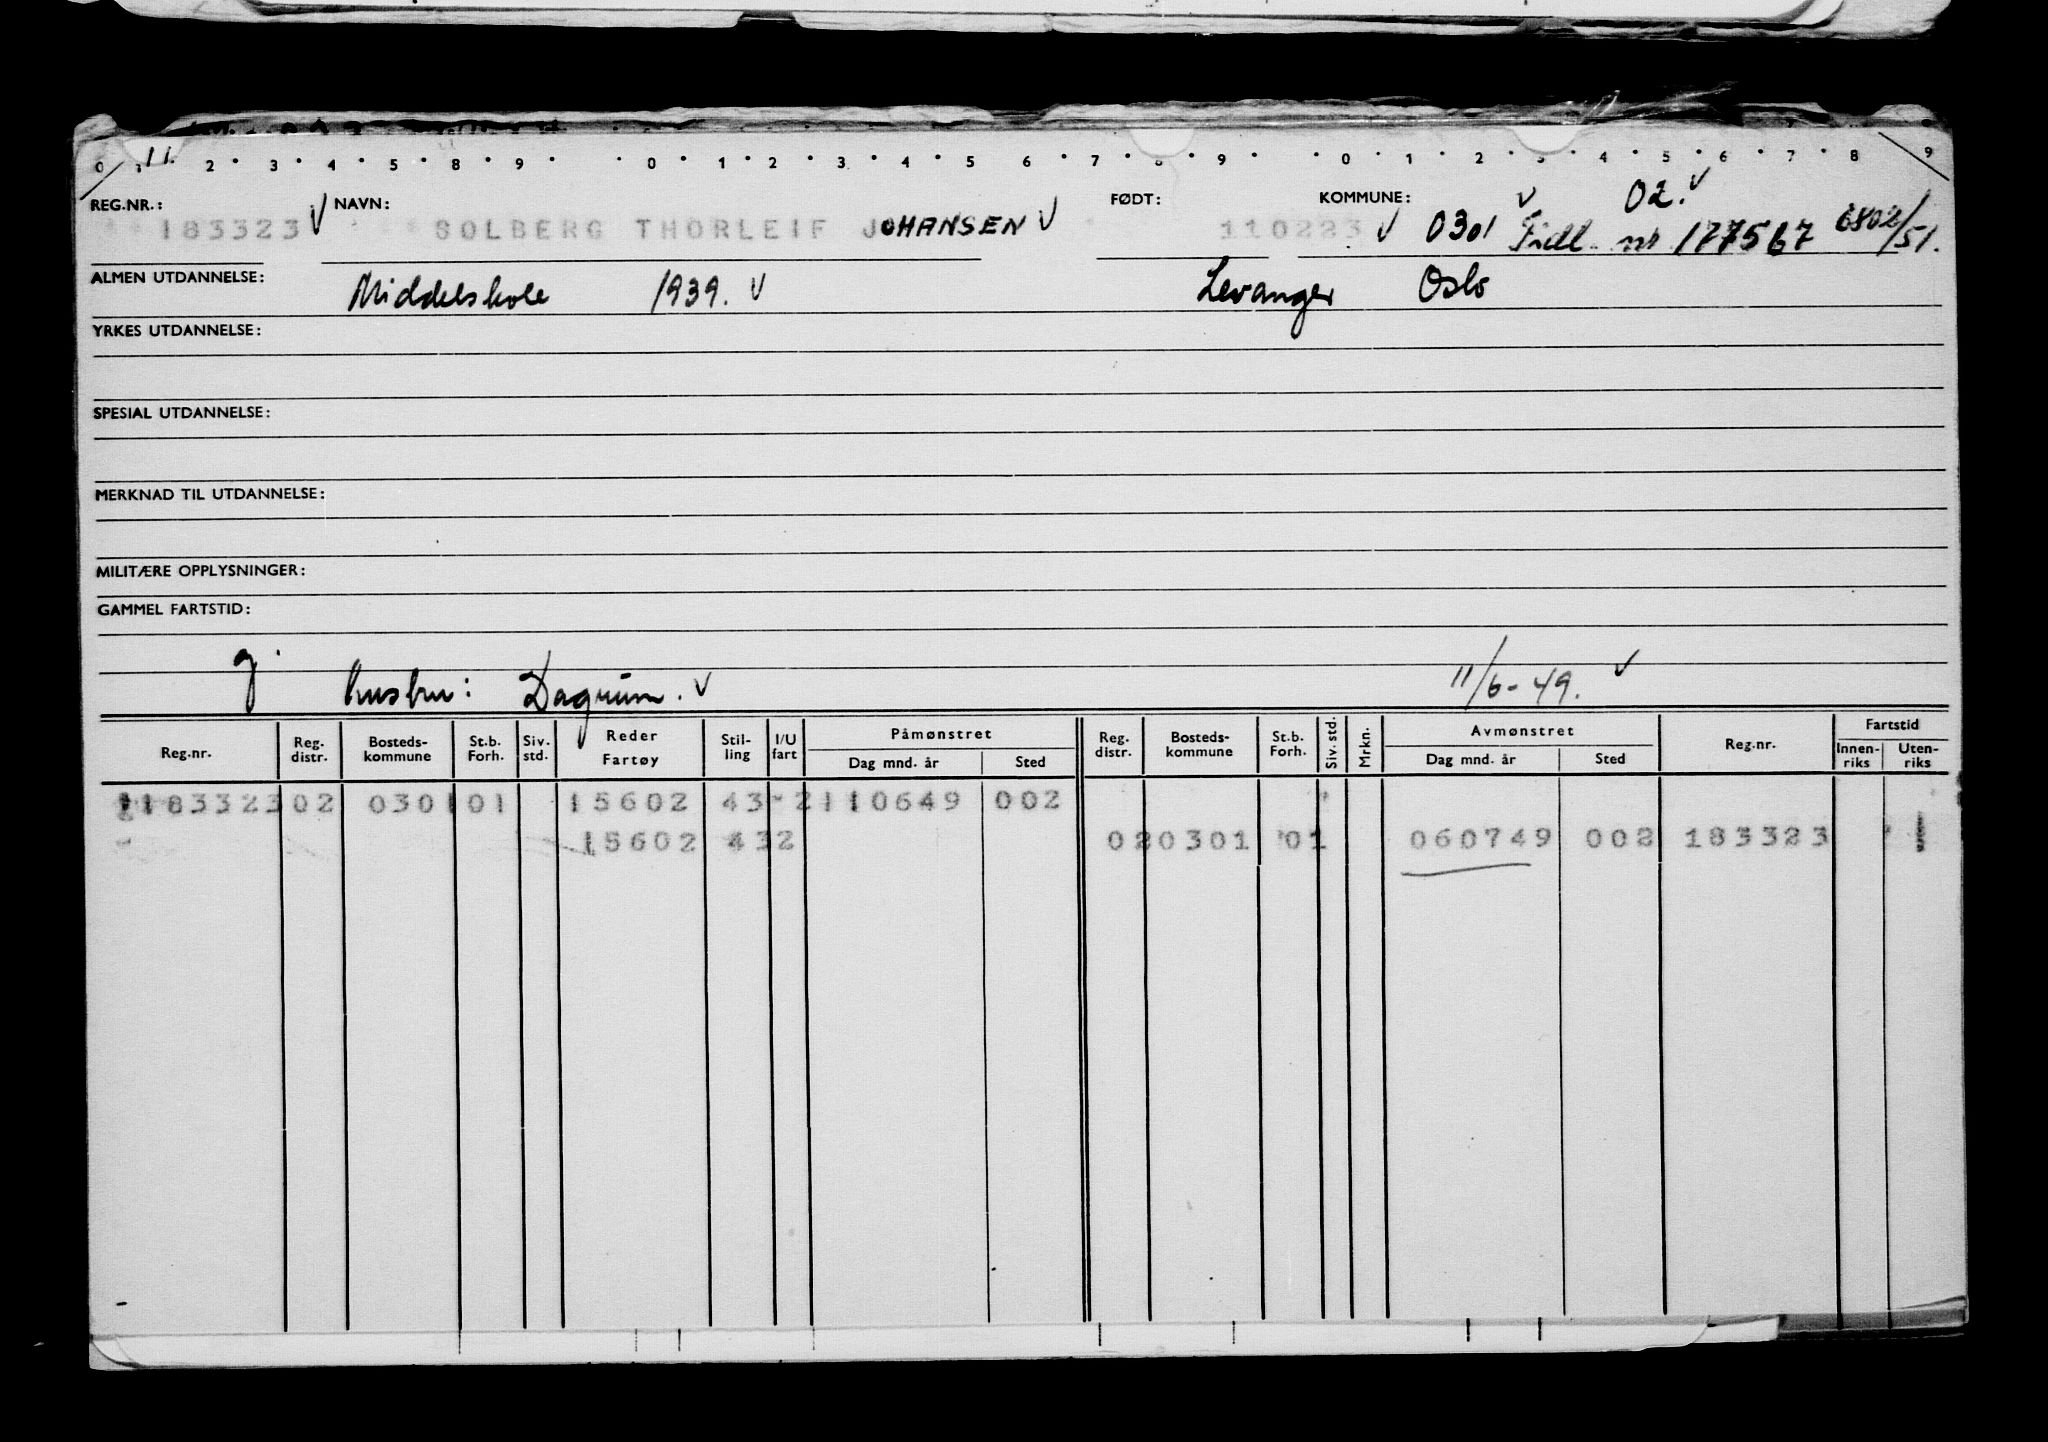 0 11. 2 3 4 5 8 9 0 1 2 3 4 5 6 7 8 9 0 1 2 3 4 5 6 7 8 9
REG.NR.: NAVN: FØDT: KOMMUNE: 02. v
183323 v SOLBERG THORLEIF JOHANSEN v 110223 v 0301 v Tidl. nr 177567 6802/51.
ALMEN UTDANNELSE: Middelskole 1939. v Levanger Oslo
YRKES UTDANNELSE:
SPESIAL UTDANNELSE:
MERKNAD TIL UTDANNELSE:
MILITÆRE OPPLYSNINGER:
GAMMEL FARTSTID:
g. hustru: Dagrun. v 11/6-49. v
Reg.nr. Reg. distr. Bosteds-kommune St.b. Forh. Siv. std. Reder Fartøy Stil-ling I/U fart Påmønstret Dag mnd. år Sted Reg. distr. Bosteds-kommune St.b. Forh. Siv. std. Mrkn. Avmønstret Dag mnd. år Sted Reg.nr. Fartstid Innen-riks Uten-riks
183323 02 0301 01 15602 43 2 110649 002
15602 43 2 02 0301 01 060749 002 183323 1